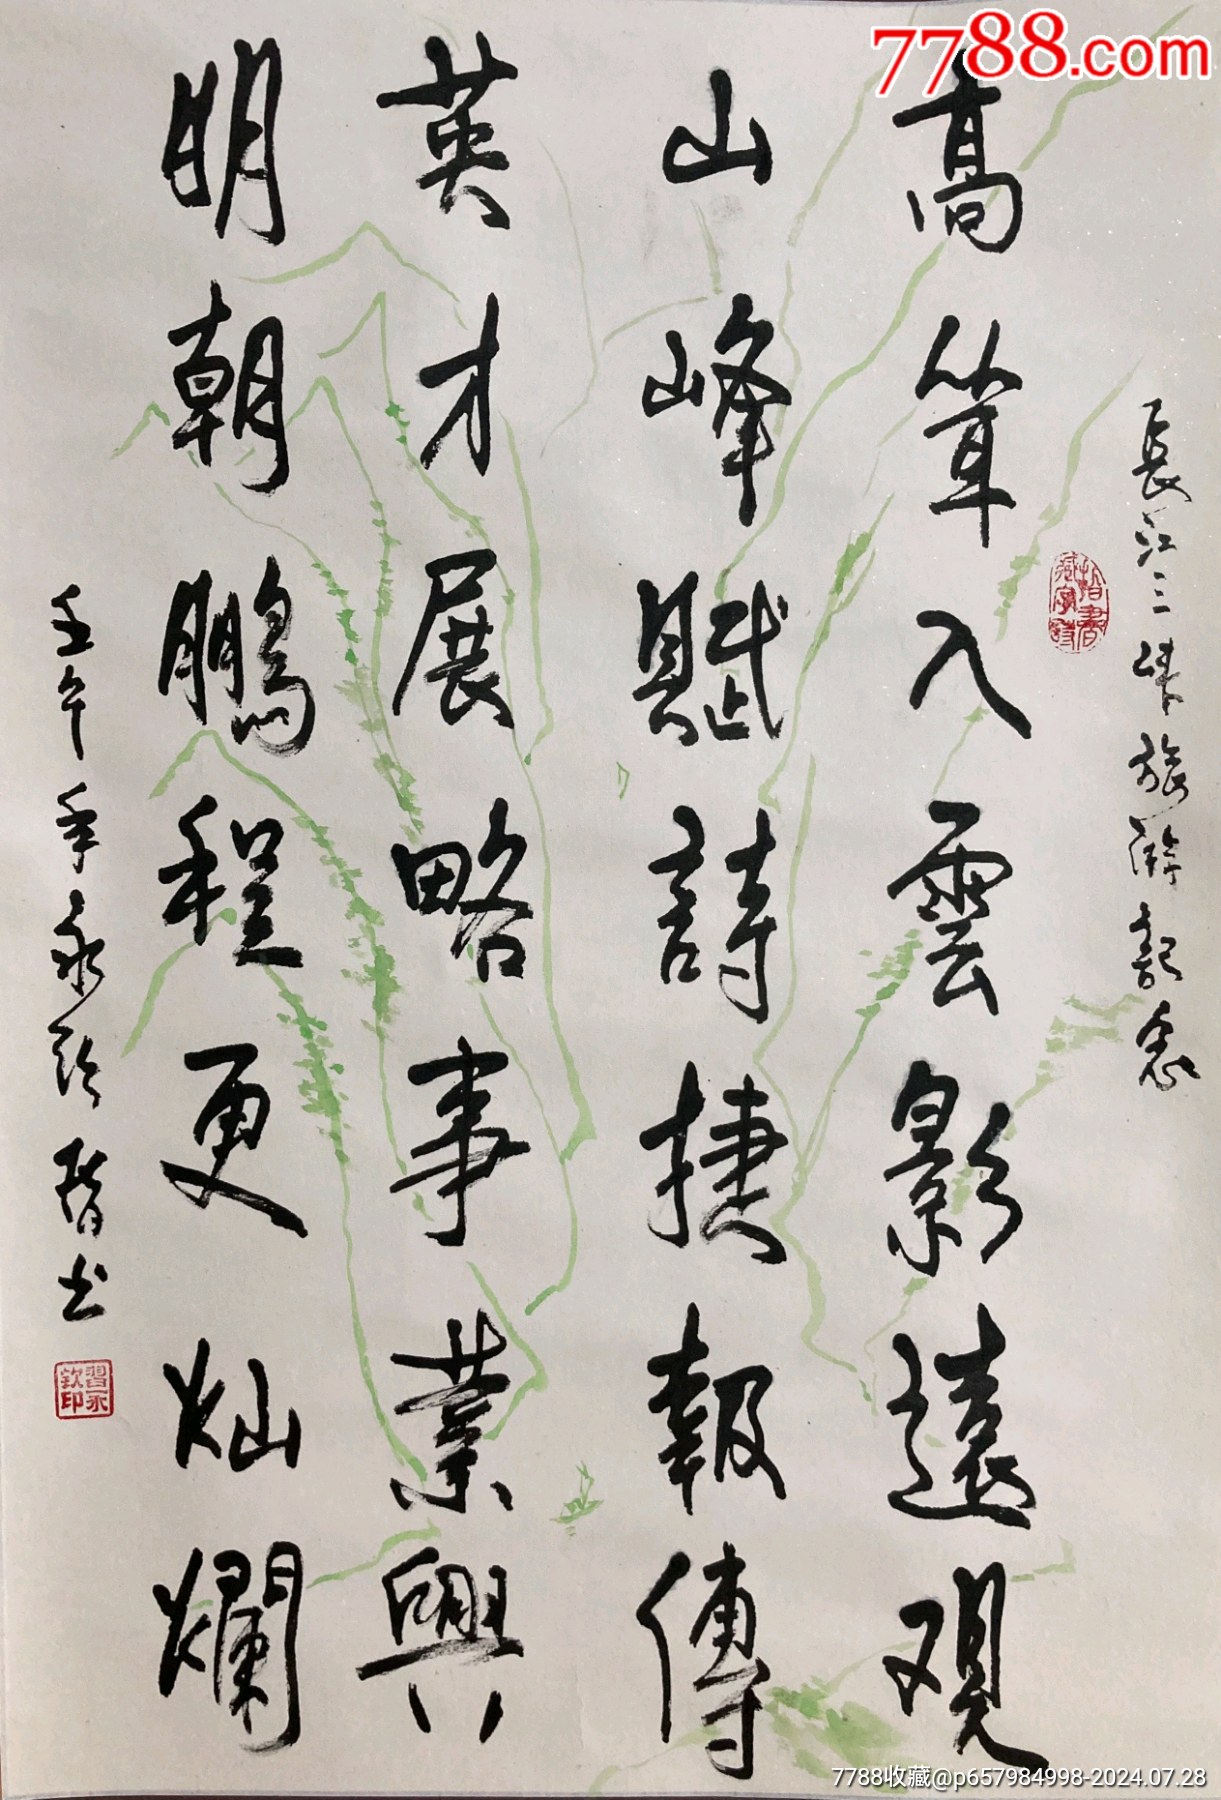 7788.com
长江三峡旅游記念
高耸入雲影遠观
山峰賦詩捷報傳
英才展略事業興
明朝鵬程更灿爛
壬午年永欽指书
習永欽印
7788收藏@p657984998-2024.07.28